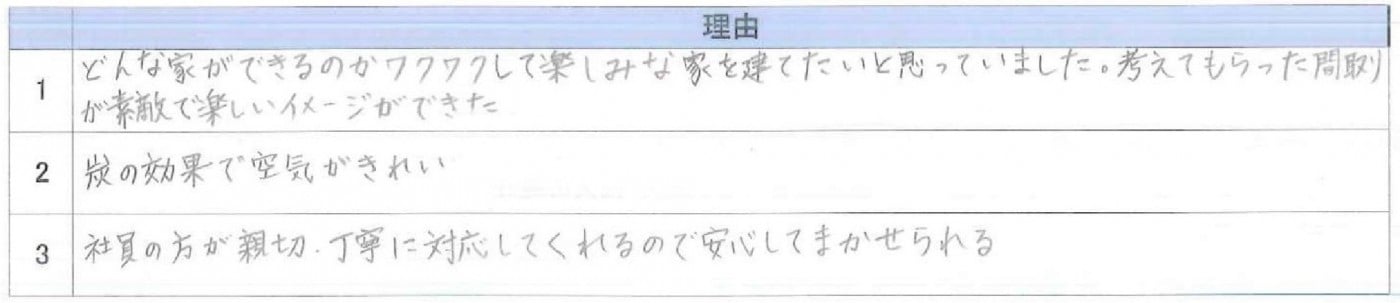 理由
1 どんな家ができるのかワクワクして楽しみな家を建てたいと思っていました。考えてもらった間取り
が素敵で楽しいイメージができた
2 炭の効果で空気がきれい
3 社員の方が親切.丁寧に対応してくれるので安心してまかせられる